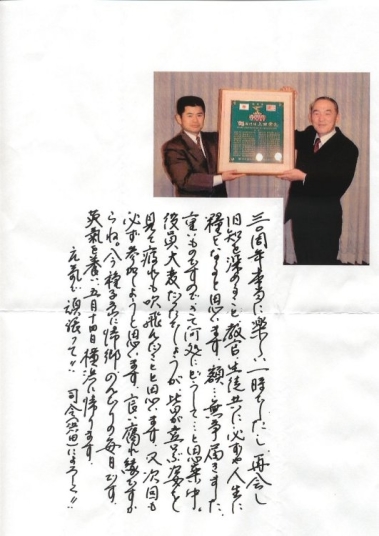 三〇周年本当に楽しい一時でした。再会し
旧知を深めること、教官生徒共に必ずや人生に
糧となると思います。額…無事届きました。
重いものですので何処にどうして…と思案中。
後更大変だったでしょうが皆が喜ぶ姿を
見て疲れも吹飛んだことと思います。又次回も
必ず参加しようと思います。良い腐れ縁ですか
らね。今種子島に帰郷のんびりの毎日です。
英気を養い五月十四日横浜に帰ります。
元気で頑張って!! 司令(浜田)によろしく!!